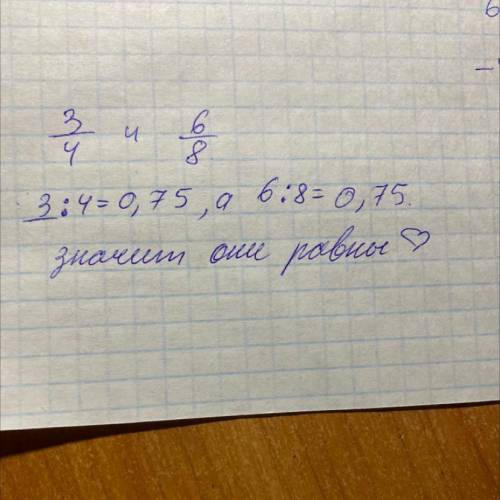 3/4 и 6/8
3:4=0,75, а 6:8=0,75.
значит они равны ♡